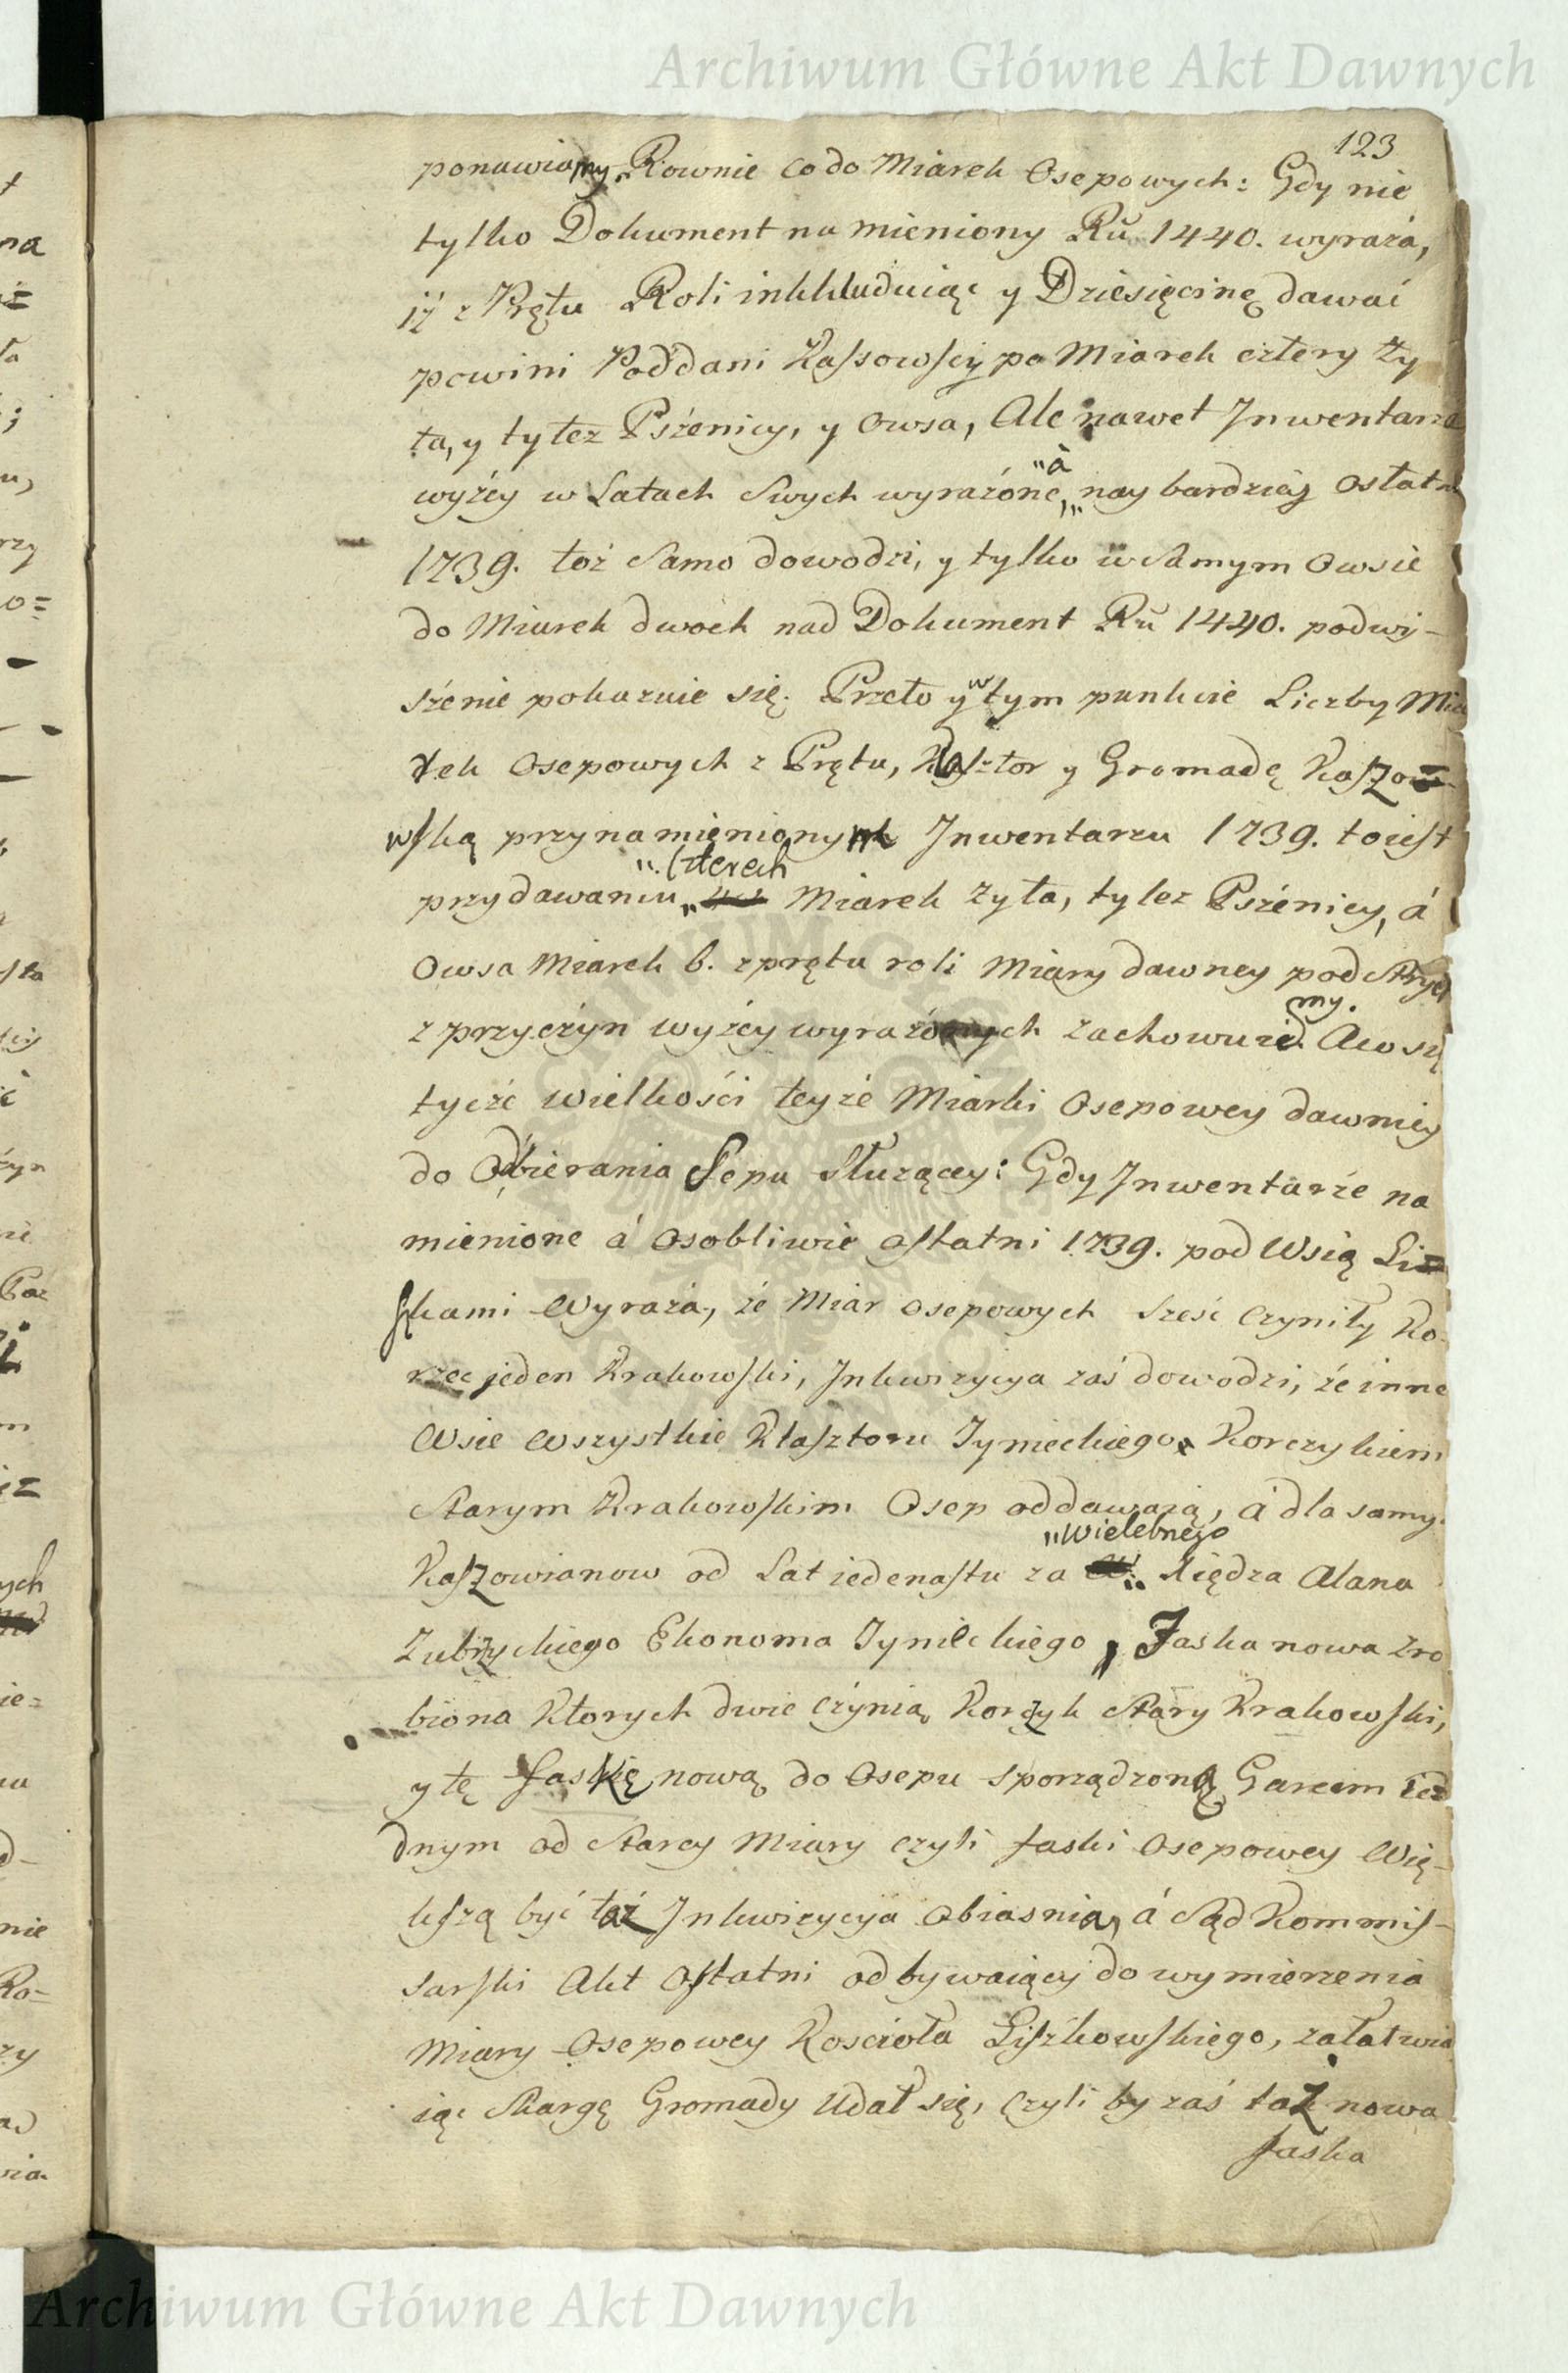 Archiwum Główne Akt Dawnych
123
ponawiamy. Rownie co do Miarek Osepowych: Gdy nie
tylko Dokument na mieniony Ru 1440. wyraża,
iż z Prętu Roli inkkludując y Dziesięcinę dawać
powini Poddani Kassowscy po Miarek cztery ży
ta, y tyłez Pszenicy, y Owsa, Ale nawet Jnwentarze
wyżey w Latach Swych wyrażóne, "à naybardziej Ostatni
1739. toż Samo dowodzi, y tylko w Samym Owsie
do Miarek dwoch nad Dokument Ru 1440. podwy-
szenie pokazuie się. Przeto y w tym punkcie Liczby Mia
rek Osepowych z Prętu, Klasztor y Gromadę Kaszow
wską przy namienionym Jnwentarzu 1739. toiest
przydawaniu "czterech Miarek żyta, tylez Pszenicy, á
Owsa Miarek 6. z prętu roli Miary dawney pod Strych
z przyczyn wyżey wyrażonych zachowuiemy. A co się
tycze wielkości teyże Miarki Osepowey dawniey
do Odbierania Sepu Służącey: Gdy Jnwentarze na
mienione á osobliwie ostatni 1739. pod Wsią Li
szkami Wyraża, że Miar osepowych sześć czyniły Ko-
rzec jeden Krakowski, Jnkwizycya zaś dowodzi, że inne
Wsie Wszystkie Klasztoru Tynieckiego Korczykiem
Starym Krakowskim Osep oddawaią, á dla samy.
Kaszowianow od Lat iedenastu za "Wielebnego Xiędza Alana
Zubrzyckiego Ekonoma Tynieckiego, Faska nowa zro
biona ktorych dwie czynią Korczyk Stary Krakowski,
y tę faskę nową do Osepu sporządzoną Garcem ied
dnym od Starey Miary czyli faski Osepowey Wię-
kszą być taż Jnkwizycya obiasnia, á Sąd Kommis-
sarski Akt Ostatni odbywaiący do wymierzenia
Miary Osepowey Kościoła Liszkowskiego, załatwia
iąc Skargę Gromady Udał się, czyli by zaś taż nowa
faska
Archiwum Główne Akt Dawnych